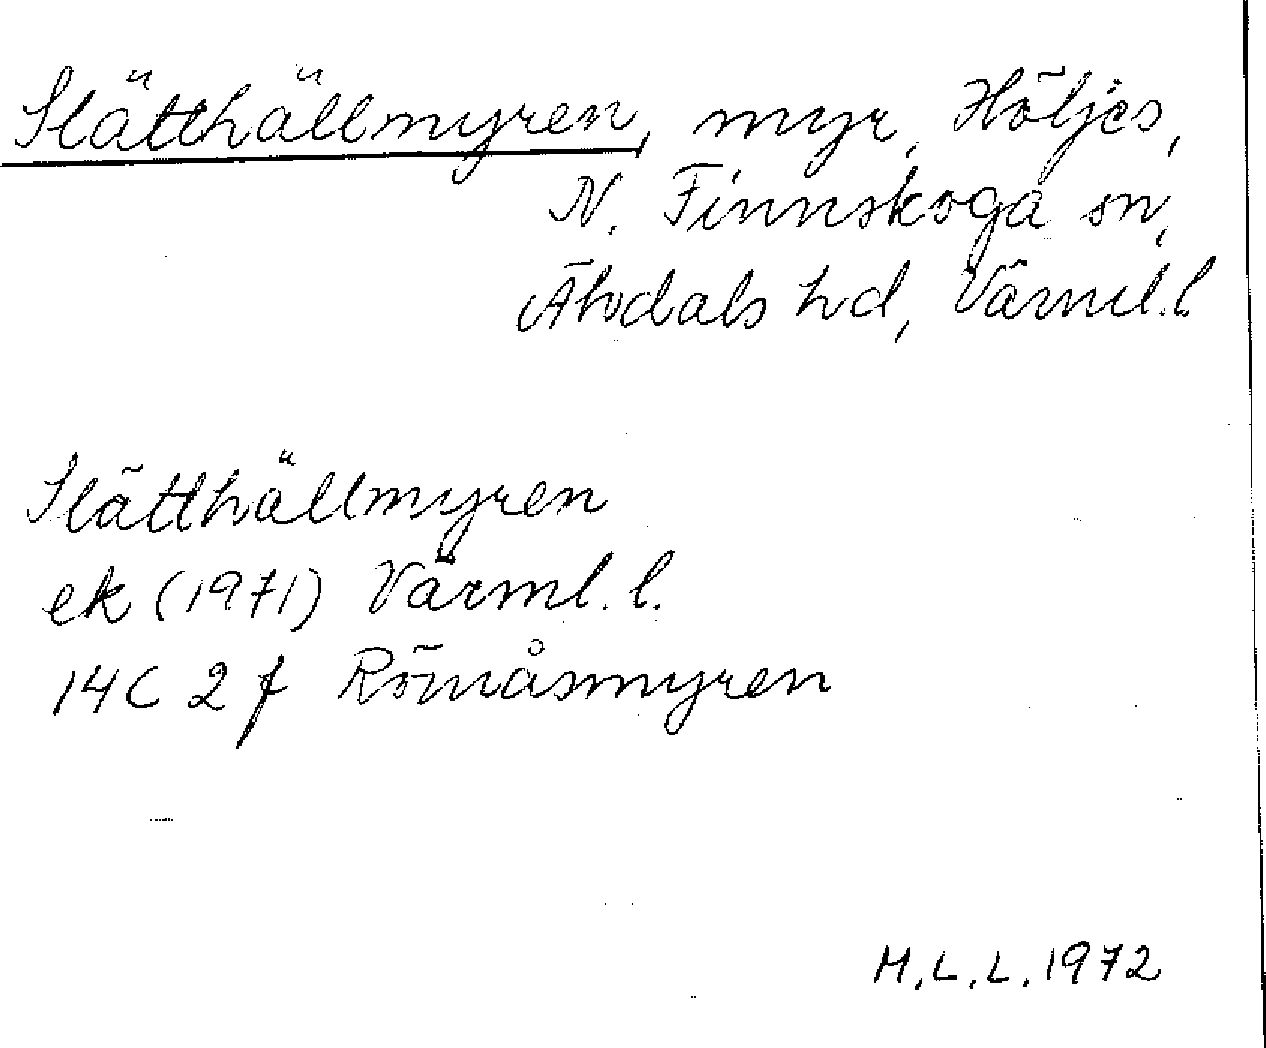 Slätthällmyren, myr, Höljes,
N. Finnskoga sn,
Älvdals hd, Värml. l.
Slätthällmyren
ek (1971) Värml. l.
14C 2f Römåsmyren
M.L.L. 1972